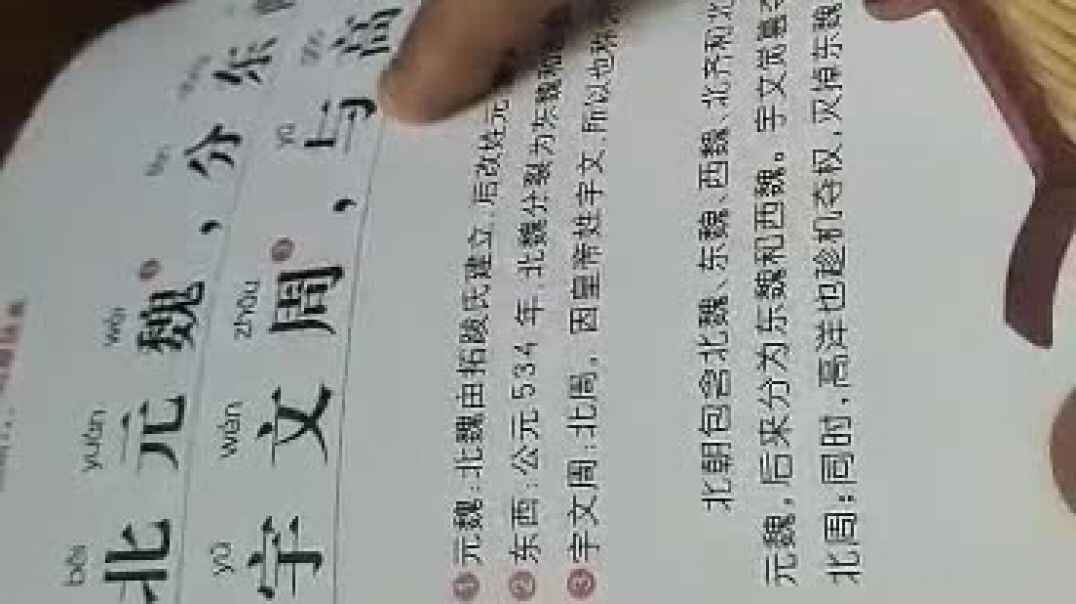 běi yuán wèi fēn
北元魏❶，分东
yǔ wén zhōu yǔ gāo
宇文周❸，与高
❶元魏：北魏由拓跋氏建立，后改姓元
❷东西：公元534年，北魏分裂为东魏和
❸宇文周：北周，因皇帝姓宇文，所以也称
北朝包含北魏、东魏、西魏、北齐和北
元魏，后来分为东魏和西魏。宇文觉篡夺
北周；同时，高洋也趁机夺权，灭掉东魏